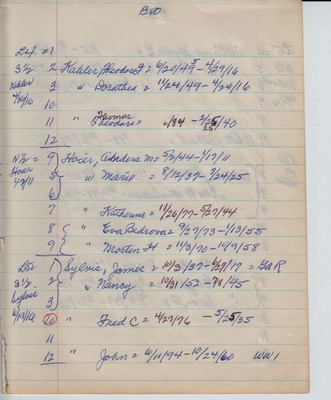 B50
Lot = 1
3 1/2 2 Kahler, Theodore F = 6/20/49 - 4/29/16
Kahler 3 " Dorothea = 11/24/49 - 4/24/16
10
11 " Thomas Theodore = /84 - 2/25/40
12
N 1/2 = 9 Hoier, M = 5/2/44 - 1/17/11
Hoier 5 " Marie = 8/12/37 - 7/24/25
4/7/11 6
7 " Katherine = 11/26/77 - 5/27/44
8 " Eva Bedrona = 9/27/73 - 1/13/55
9 " Morten H = 11/3/70 - 10/9/58
Lot 1 Sylvis, James = 10/3/37 - 6/27/17 = GAR
3 1/2 2 " Nancy = 10/31/52 - 7/8/45
Sylvis 3
6/19/16 10 " Fred C = 4/27/76 - 5/25/35
11
12 " John = 6/11/94 - 10/24/60 WW1